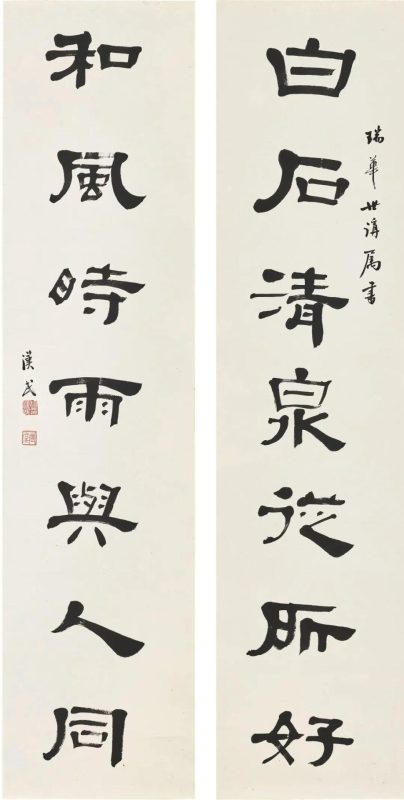 白石清泉從所好
瑞華世講屬書
和風時雨與人同
漢民